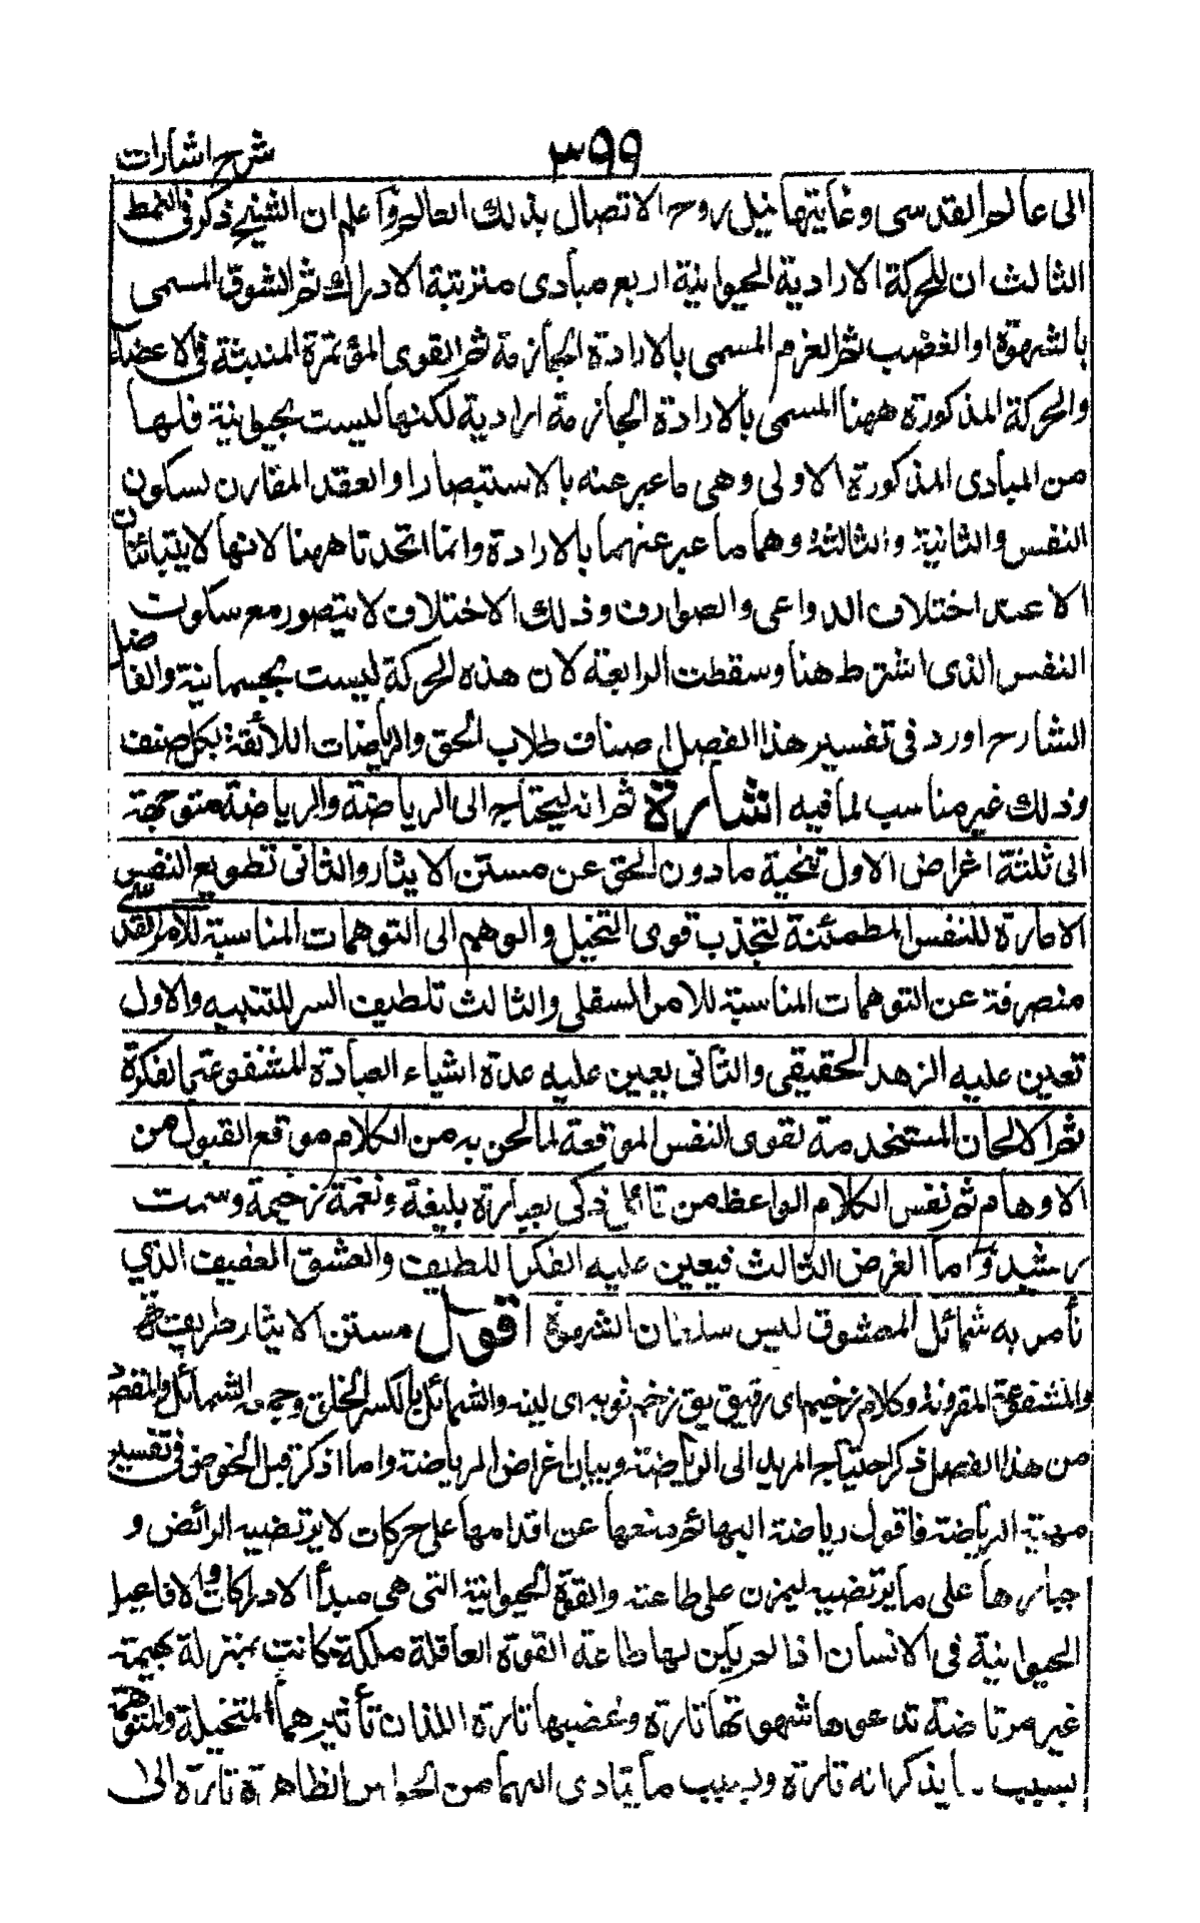 شرح اشارات
٣٩٩
الى عالم القدسى وغايتها نيل روح الاتصال بذلك العالم واعلم ان الشيخ ذكر فى النمط
الثالث ان للحركة الارادية الحيوانية اربع مبادى مترتبة الادراك ثم الشوق المسمى
بالشهوة او الغضب ثم العزم المسمى بالارادة الجازمة ثم القوى المؤتمرة المنبثة فى الاعضاء
والحركة المذكورة ههنا المسمى بالارادة الجازمة ارادية لكنها ليست بحيوانية فلها
من المبادى المذكورة الاولى وهى ما عبر عنه بالاستبصار او العقد المقارن لسكون
النفس والثانية والثالثة وهما ما عبر عنهما بالارادة وانما اتحدتا ههنا لانها لا يتبائنان
الا عند اختلاف الدواعى والصوارف وذلك الاختلاف لا يتصور مع سكون
النفس الذى اشترط هنا وسقطت الرابعة لان هذه الحركة ليست بجسمانية والفاضل
الشارح اورد فى تفسير هذا الفصل اصناف طلاب الحق والرياضات اللائقة بكل صنف
وذلك غير مناسب لما فيه اشارة ثم انه ليحتاج الى الرياضة والرياضة متوجهة
الى ثلثة اغراض الاول تنحية ما دون الحق عن مستن الايثار والثانى تطويع النفس
الامارة للنفس المطمئنة لتجذب قوى التخيل والوهم الى التوهمات المناسبة للامر القدسى
منصرفة عن التوهمات المناسبة للامر السفلى والثالث تلطيف السر للتنبيه والاول
تعين عليه الزهد الحقيقى والثانى يعين عليه عدة اشياء العبادة المشفوعة بالفكرة
ثم الالحان المستخدمة لقوى النفس الموقعة لما لحن به من الكلام موقع القبول من
الاوهام ثم نفس الكلام الواعظ من قائل ذكى بعبارة بليغة ونغمة رخيمة وسمت
رشيد واما الغرض الثالث فيعين عليه الفكر اللطيف والعشق العفيف الذي
تأمر به شمائل المعشوق ليس سلطان الشهوة اقول مستن الايثار طريقته
والمشفوعة المقرونة وكلام رخيم اى رقيق يق رخم ثوبه اى لينه والشمائل بالكسر الخلق وجمعه الشمائل والمقصد
من هذا الفصل ذكر احتياج المريد الى الرياضة وبيان اغراض الرياضة واما اذكر قبل الخوض فى تفسير
مهية الرياضة فاقول رياضة البهائم منعها عن اقدامها على حركات لا يرتضيه الرائض و
جبارها على ما يرتضيه ليمرن على طاعته والقوة الحيوانية التى هى مبدأ الادراكات والافاعيل
الحيوانية فى الانسان اذا لم يكن لها طاعة القوة العاقلة ملكة كانت بمنزلة بهيمة
غير مرتاضة تدعوها شهوتها تارة وغضبها تارة اللذان تأثيرهما المتخيلة والمتوهمة
بسبب ما يذكرانه تارة وبسبب ما يتادى اليهما من الحواس الظاهرة تارة الى